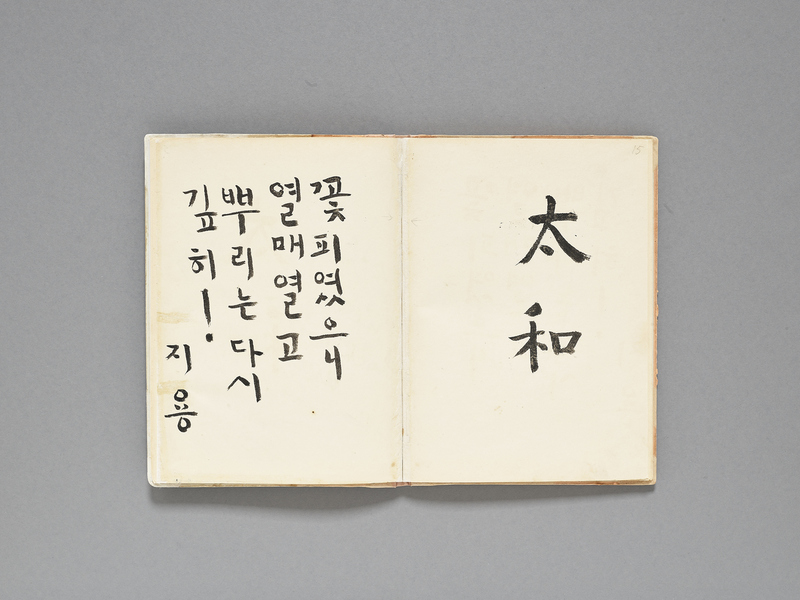 太和
꽃 피였으니
열매 열고
뿌리는 다시
깊히!
지용
15